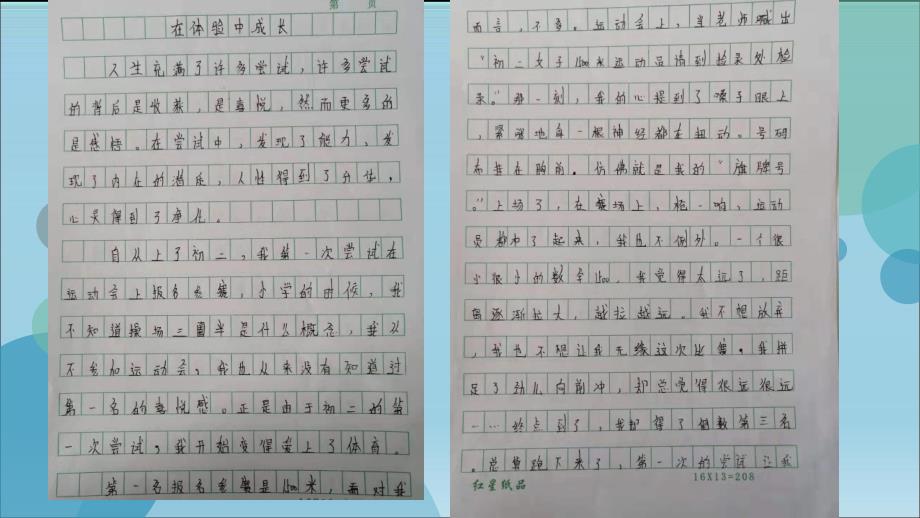 第 页
在体验中成长
人生充满了许多尝试，许多尝试
的背后是收获，是喜悦，然而更多的
是感悟。在尝试中，发现了能力，发
现了内在的潜能，人性得到了升华，
心灵得到了净化。
自从上了初二，我第一次尝试在
运动会上报名参赛，小学的时候，我
不知道操场三圈半是什么概念，我从
不参加运动会，我也从来没有知道过
第一名的喜悦感。正是由于初二的第
一次尝试，我开始变得爱上了体育。
第一名报名参赛是1500米，面对我
而言，不多。运动会上，当老师喊出
“初二女子1500米运动员请到检录处检
录。”那一刻，我的心提到了嗓子眼上
，紧张地每一根神经都在扭动。号码
布英在胸前。仿佛就是我的“旗牌号
。”上场了，在赛场上，枪一响，运动
员都冲了起来，我也不例外。一个很
小很小的数字1500，我觉得太远了，距
离逐渐拉大，越拉越远。我不想放弃
，我也不想让我无缘这次比赛。我拼
足了劲儿向前冲，却总觉得很远很远
……终点到了，我却得了倒数第三名
。总算跑下来了，第一次的尝试让我
红星纸品
16X13=208